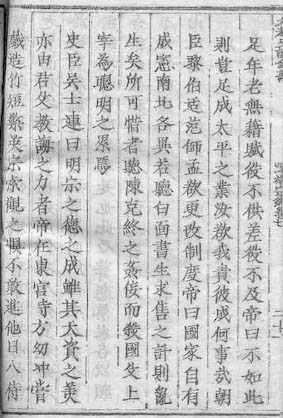 足年老無藉賦役不供差役不及帝曰不如此
則豈足成太平之業汝欲我責彼成何事哉朝
臣黎伯适范師孟欲更改制度帝曰國家自有
成憲南北各異若聽白面書生求售之計則亂
生矣所可惜者聽陳克終之姦佞而殺國父上
宰為聰明之累焉
史臣吳士連曰明宗之德之成雖其天資之美
亦由君父教誨之力者帝在東宮寺方幼冲嘗
戲造竹短英宗來觀之惧不敢進他日入侍